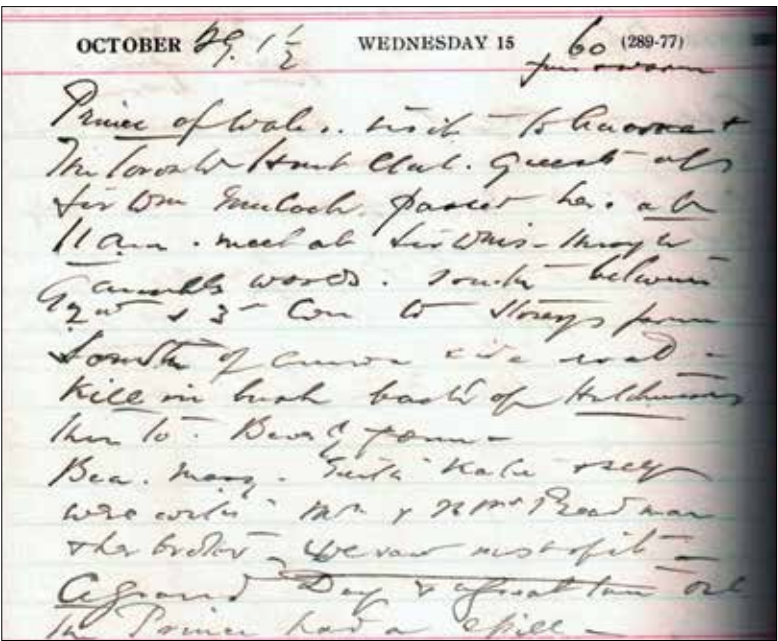 OCTOBER 29. 1 1/2 WEDNESDAY 15 60 (289-77)
Prince of Wales. visit to Aurora &
The Toronto Hunt Club. Guest of
Sir Wm Mulock. passed here at
11 am. meet at Sir Wms - through
woods. south between
2nd & 3 Con to Storeys farm
South of Aurora side road -
Kill in bush back of Hutchinsons
then to farm -
Bea. Mary. Kate & self
were with Mr & Mrs Readman
& her brother - we saw most of it -
A grand Day & a great turn out
The Prince had a spill -